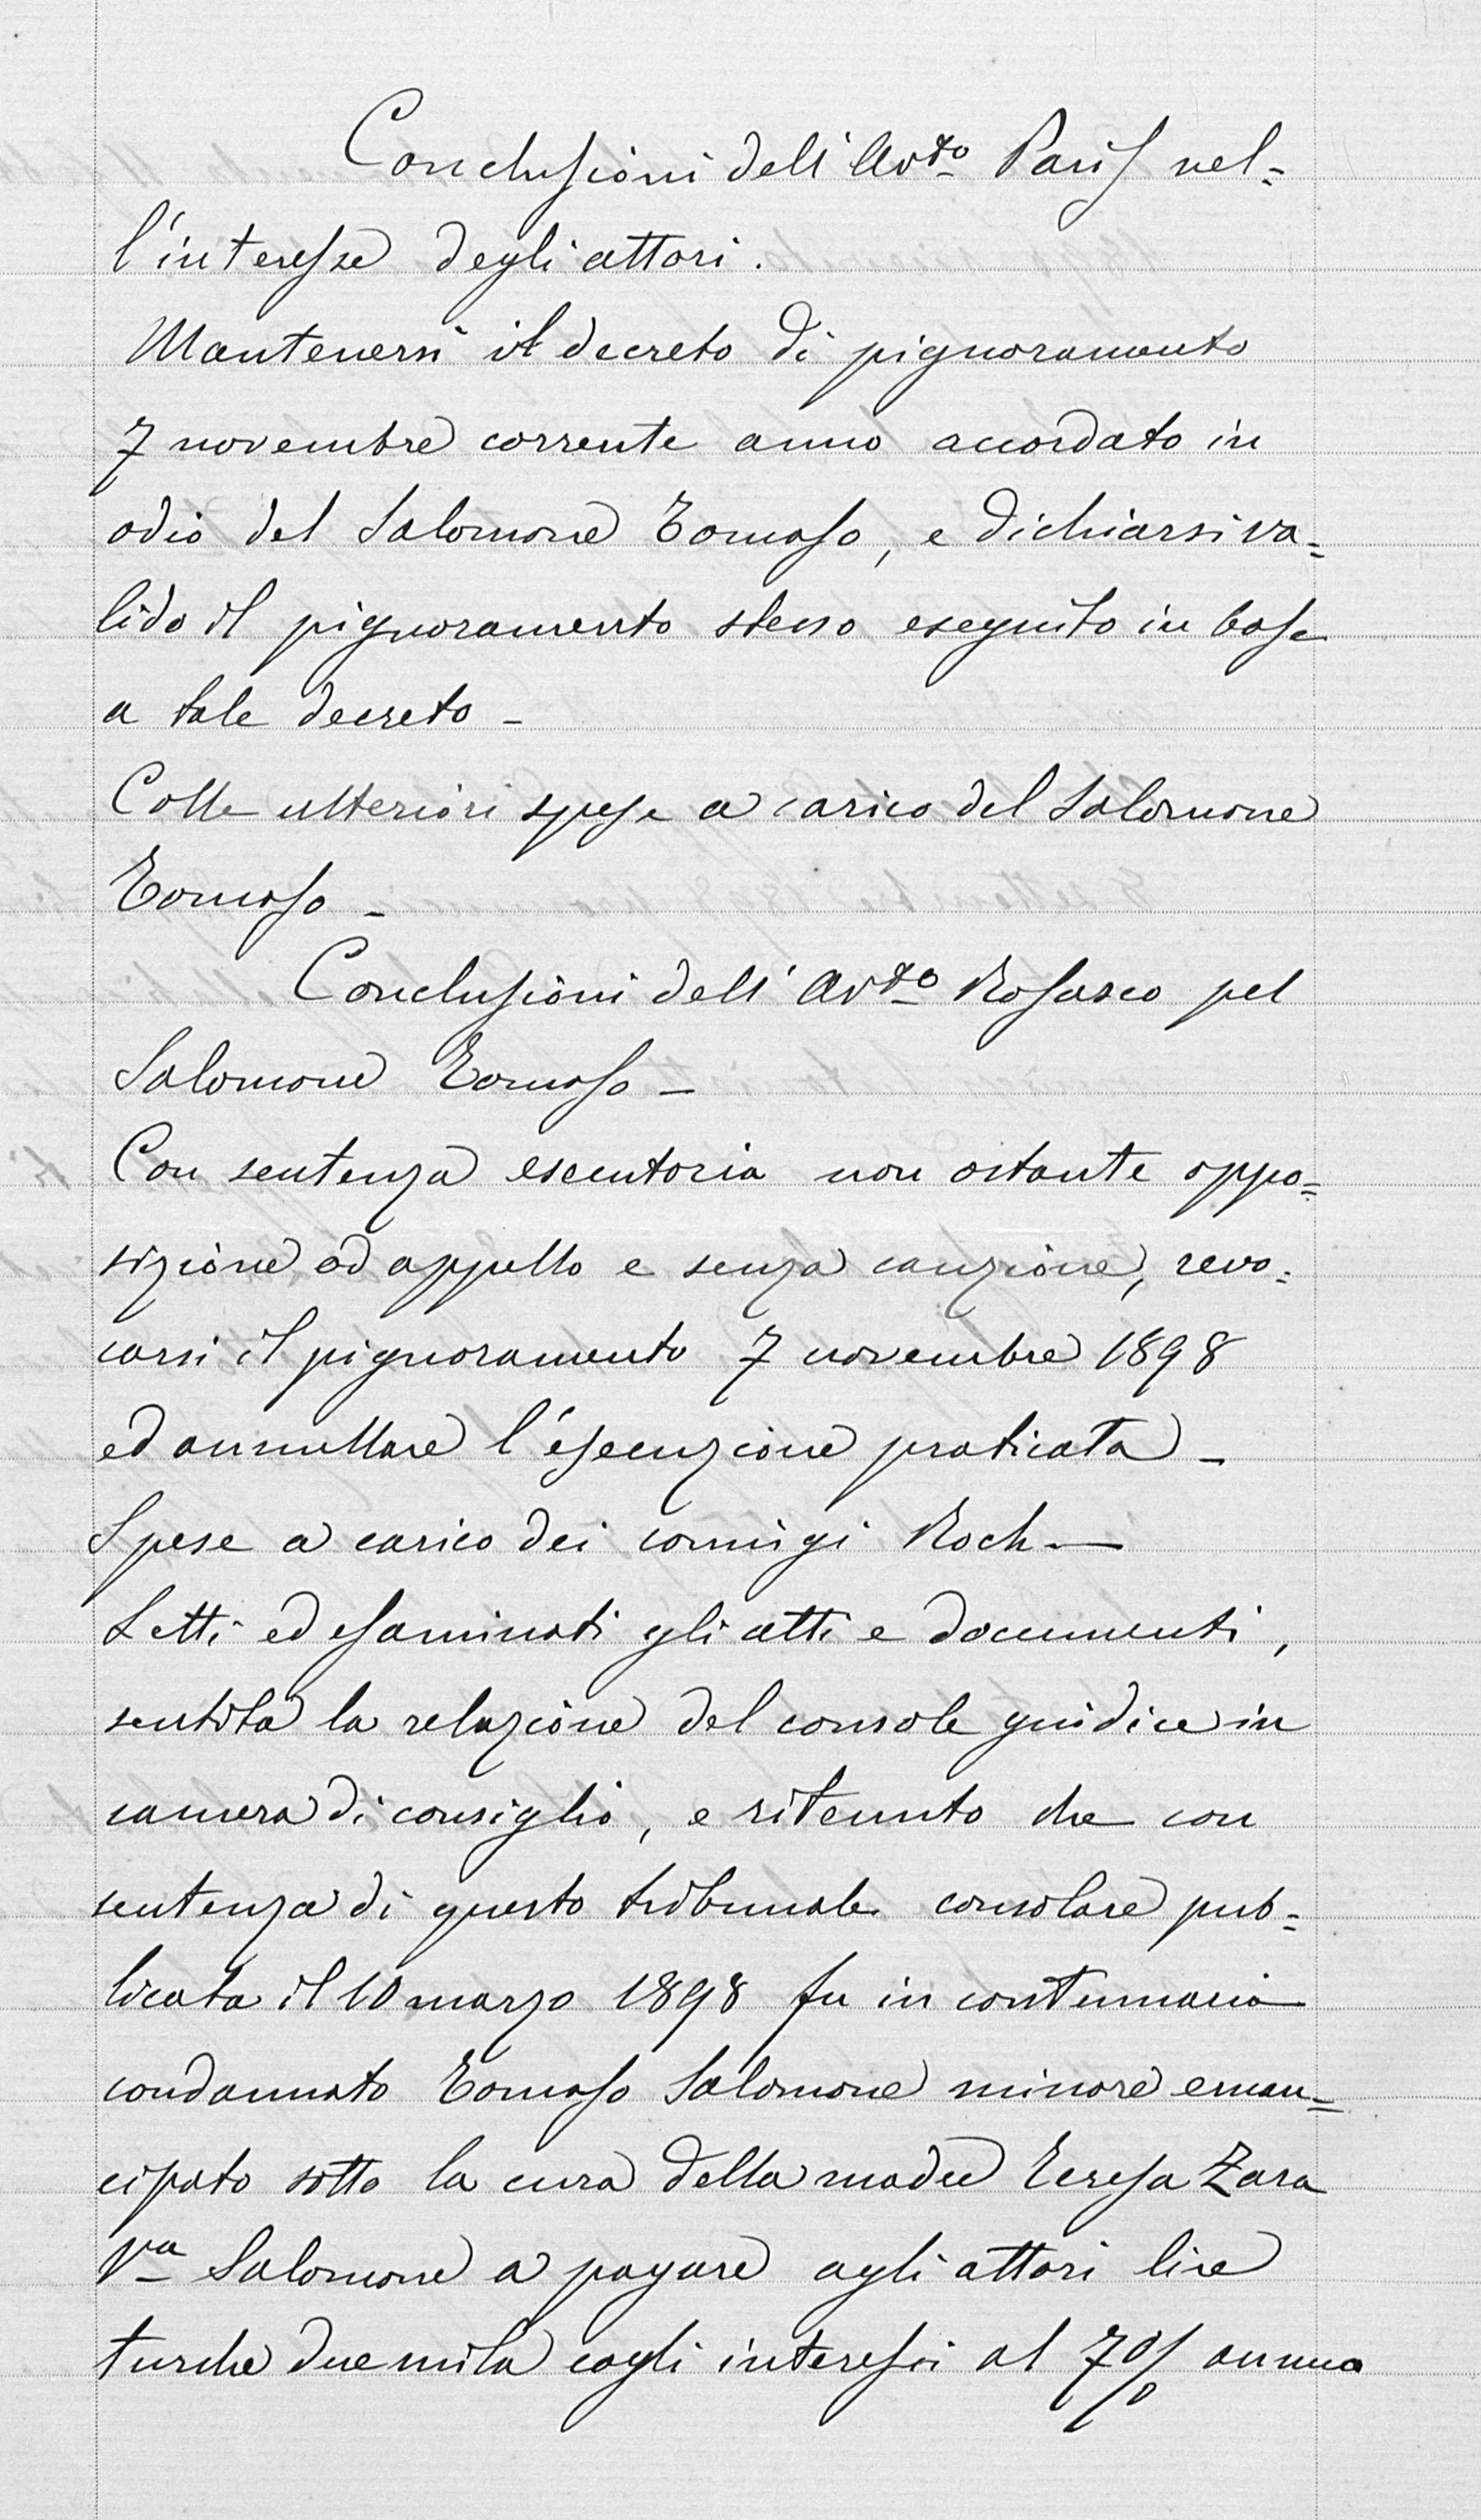 Conclusioni dell'Avto Paris nel=
l'interesse degli attori.
Mantenersi il decreto di pignoramento
7 novembre corrente anno accordato in
odio del Salomone Tomaso, e dichiarsi va=
lido il pignoramento stesso eseguito in base
a tale decreto -
Colle ulteriori spese a carico del Salomone
Tomaso -
Conclusioni dell'Avto Rosasco pel
Salomone Tomaso -
Con sentenza esecutoria non ostante oppo=
sizione od appello e senza cauzione, revo=
carsi il pignoramento 7 novembre 1898
ed annullare l'esecuzione praticata -
Spese a carico dei coniugi Roch -
Letti ed esaminati gli atti e documenti,
sentita la relazione del console giudice in
camera di consiglio, e ritenuto che con
sentenza di questo tribunale consolare pub=
licata il 10 marzo 1898 fu in contumacia
condannato Tomaso Salomone minore eman=
cipato sotto la cura della madre Teresa Zara
Va Salomone a pagare agli attori lire
turche duemila cogli interessi al 7% annuo